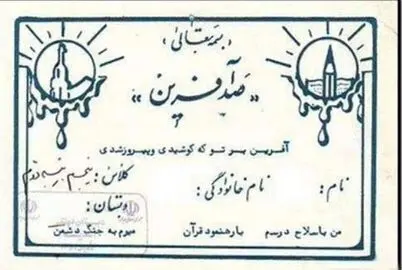 بسمه تعالی
« صد آفرین »
آفرین بر تو که کوشیدی و پیروز شدی
نام : نام خانوادگی : کلاس : پنجم
دبستان :
من با سلاح درسم با رهنمود قرآن میرم به جنگ دشمن